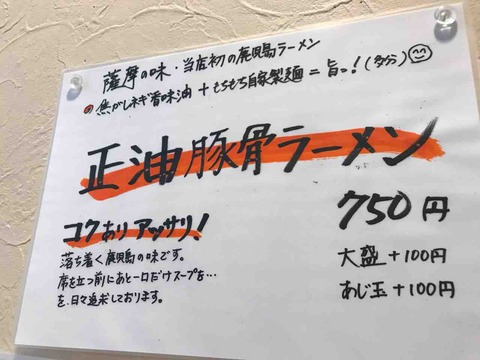 薩摩の味・当店初の鹿児島ラーメン
焦がしネギ香味油+もちもち自家製麺=旨っ!(多分)
正油豚骨ラーメン
750円
コクありアッサリ!
落ち着く鹿児島の味です。
席を立つ前にあと一口だけスープを…
を、日々追求しております。
大盛+100円
あじ玉+100円